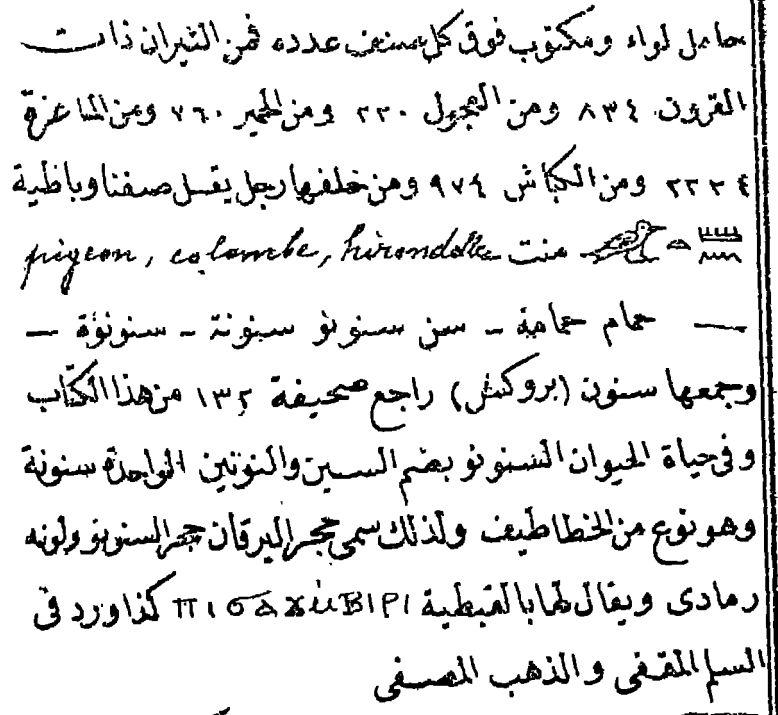 حامل لواء ومكتوب فوق كل صنف عدده فمن الثيران ذات
القرون ٨٣٤ ومن العجول ٢٢٠ ومن الحمير ٧٦٠ ومن الماعزة
٢٢٣٤ ومن الكباش ٩٧٤ ومن خلفها رجل يقسل صفنا وباظية
منت pigeon, colombe, hirondelle
— حمام حمامة ـ سن سنونو سنونة ـ سنونؤة —
وجمعها سنون (بروكش) راجع صحيفة ١٣٢ من هذا الكتاب
وفى حياة الحيوان السنونو بضم السين والنونين الواحدة سنونة
وهو نوع من الخطاطيف ولذلك سمى حجر اليرقان حجر السنونو ولونه
رمادى ويقال لها بالقبطية كذا ورد فى
السلم المقفى والذهب المصفى